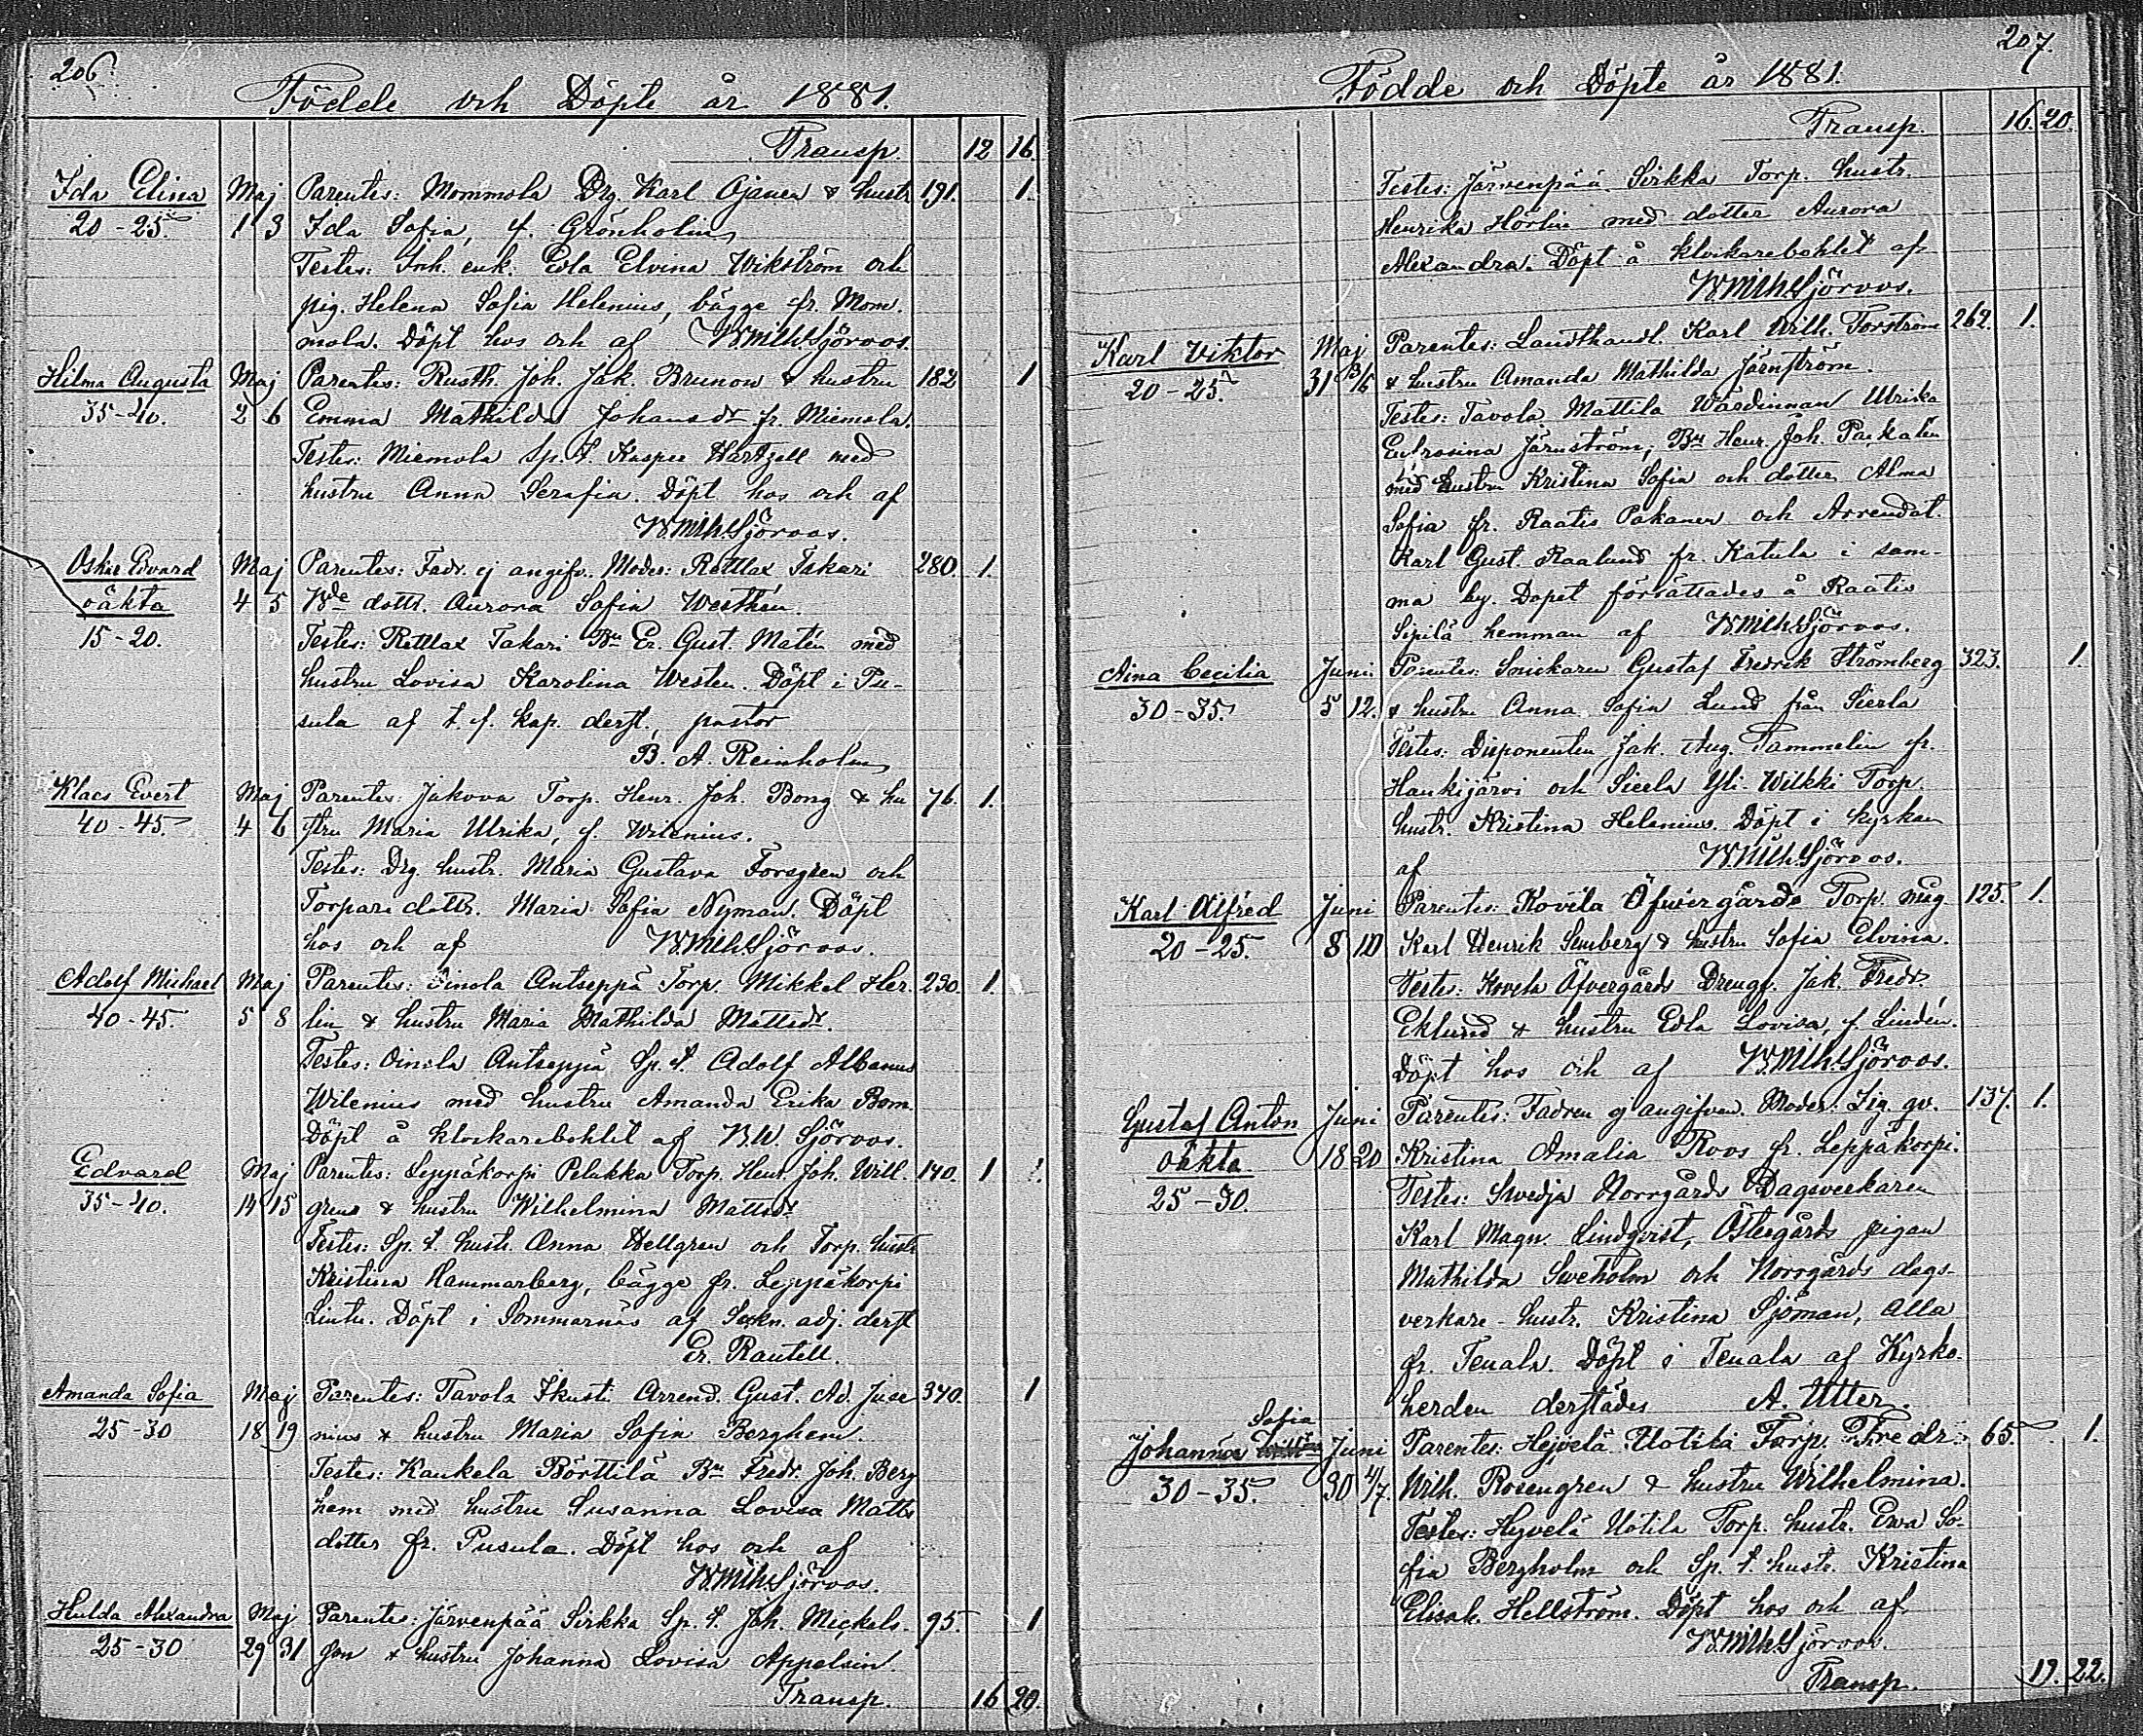 206.
Födde och Döpte år 1881.
Transp. 12 16.
Ida Elina Maj Parentes: Mommola Drg. Karl Ojanen & hustr 191. 1.
20-25. 1 3 Ida Sofia, f. Grönholm
Testes: Inh. enk. Edla Elvina Wikström och
pig. Helena Sofia Helenius, bägge fr. Mom-
mola. Döpt hos och af W.Milh.Sjöroos.
Hilma Augusta Maj Parentes: Rusth. Joh. Jak. Brunow & hustru 182 1
35-40. 2 6 Emma Mathilda Johansdr fr. Miemola.
Testes: Miemola Sp. t. Kasper Hartzell med
hustru Anna Serafia. Döpt hos och af
W.Milh.Sjöroos.
Oskar Edvard Maj Parentes: Fadr. ej angifv. Moder: Rettlax Takari 280. 1.
oäkta 4 5 Bde dottr. Aurora Sofia Westhén.
15-20. Testes: Rettlax Takari Bn Er. Gust. Matén med
hustru Lovisa Karolina Westen. Döpt i Pu-
sula af t. f. kap. derst., pastor
B. A. Reinholm
Klaes Evert Maj Parentes: Jakova Torp. Henr. Joh. Bong & hu 76. 1.
40-45. 4 6 stru Maria Ulrika, f. Wilenius.
Testes: Drg. hustr. Maria Gustava Forsgren och
Torpare dottr. Maria Sofia Nyman. Döpt
hos och af W.Milh.Sjöroos.
Adolf Michael Maj Parentes: Oinola Antseppä Torp. Mikkel Her- 230. 1.
40-45. 5 8 lin & hustru Maria Mathilda Mattsdr.
Testes: Oinola Antseppä Sp. t. Adolf Albanus
Wilenius med hustru Amanda Erika Bom.
Döpt å klockarebohlet af B.W. Sjöroos.
Edvard Maj Parentes: Leppäkorpi Pelukka Torp. Henr. Joh. Will- 140. 1
35-40. 14 15 grens & hustru Wilhelmina Mattsdr
Testes: Sp. t. hustr. Anna Hellgren och Torp. hustr
Kristina Hammarberg, bägge fr. Leppäkorpi
Lintu. Döpt i Sommarnäs af Sokn. adj. derst
Er. Rautell.
Amanda Sofia Maj Parentes: Tavola Ikusti Arrend. Gust. Ad. Juse 340. 1
25-30 18 19 nius & hustru Maria Sofia Berghem
Testes: Kaukela Börttilä Bn Fredr. Joh. Berg
hem med hustru Susanna Lovisa Matts
dotter fr. Pusula. Döpt hos och af
W.Milh.Sjöroos.
Hulda Alexandra Maj Parentes: Järvenpää Sirkka Sp. t. Joh. Mickels- 95. 1
25-30 29 31 son & hustru Johanna Lovisa Appelsin.
Transp. 16 20.
207.
Födde och Döpte år 1881.
Transp. 16. 20.
Testes: Järvenpää Sirkka Torp. hustr.
Henrika Hörlin med dotter Aurora
Alexandra. Döpt å klockarebohlet af
W.Milh.Sjöroos.
Karl Viktor Maj Parentes: Landthandl. Karl Wilh. Forström 262. 1.
20-25. 31 & hustru Amanda Mathilda Järnström.
Testes: Tavola Mattila Wärdinnan Ulrika
Eufrosina Järnström; Bn Henr. Joh. Packalén
med hustru Kristina Sofia och dotter Alma
Sofia fr. Raatis Pakanen och Arrendat.
Karl Gust. Raalund fr. Katula i sam-
ma by. Dopet förrättades å Raatis
Sipilä hemman af W.Milh.Sjöroos.
Aina Cecilia Juni Parentes: Snickaren Gustaf Fredrik Strömberg 323. 1.
30-35. 5 12. & hustru Anna Sofia Lund från Sierla
Testes: Disponenten Jak. Aug. Tammelin fr.
Haukijärvi och Sierla Yli-Wilkki Torp.
hustr. Kristina Helenius. Döpt i kyrkan
af W.Milh.Sjöroos.
Karl Alfred Juni Parentes: Kovela Öfvergårds Torp. måg 125. 1.
20-25. 8 10 Karl Henrik Semberg & hustru Sofia Elvina.
Testes: Kovela Öfvergårds Dreng. Jak. Fredr.
Eklund & hustru Edla Lovisa, f. Lindén.
Döpt hos och af W.Milh.Sjöroos.
Gustaf Anton Juni Parentes: Fadren ej angifven. Moder: Lig. qv. 137. 1.
oäkta 18 20 Kristina Amalia Roos fr. Leppäkorpi.
25-30. Testes: Swedja Norrgårds Dagsverkaren
Karl Magn. Lindqvist, Östergårds pigan
Mathilda Sweholm och Norrgårds dags-
verkare-hustr. Kristina Sjöman, alla
fr. Tenala. Döpt i Tenala af Kyrko-
herden derstädes A. Utter.
Sofia
Johanna Juni Parentes: Hejvelä Uotila Torp. Fredr. 65. 1.
30-35. 30 4/7. Wilh. Rosengren & hustru Wilhelmina.
Testes: Hyvelä Uotila Torp. hustr. Ewa So-
fia Bergholm och Sp. t. hustr. Kristina
Elisab. Hellström. Döpt hos och af
W.Milh.Sjöroos.
Transp. 19. 22.